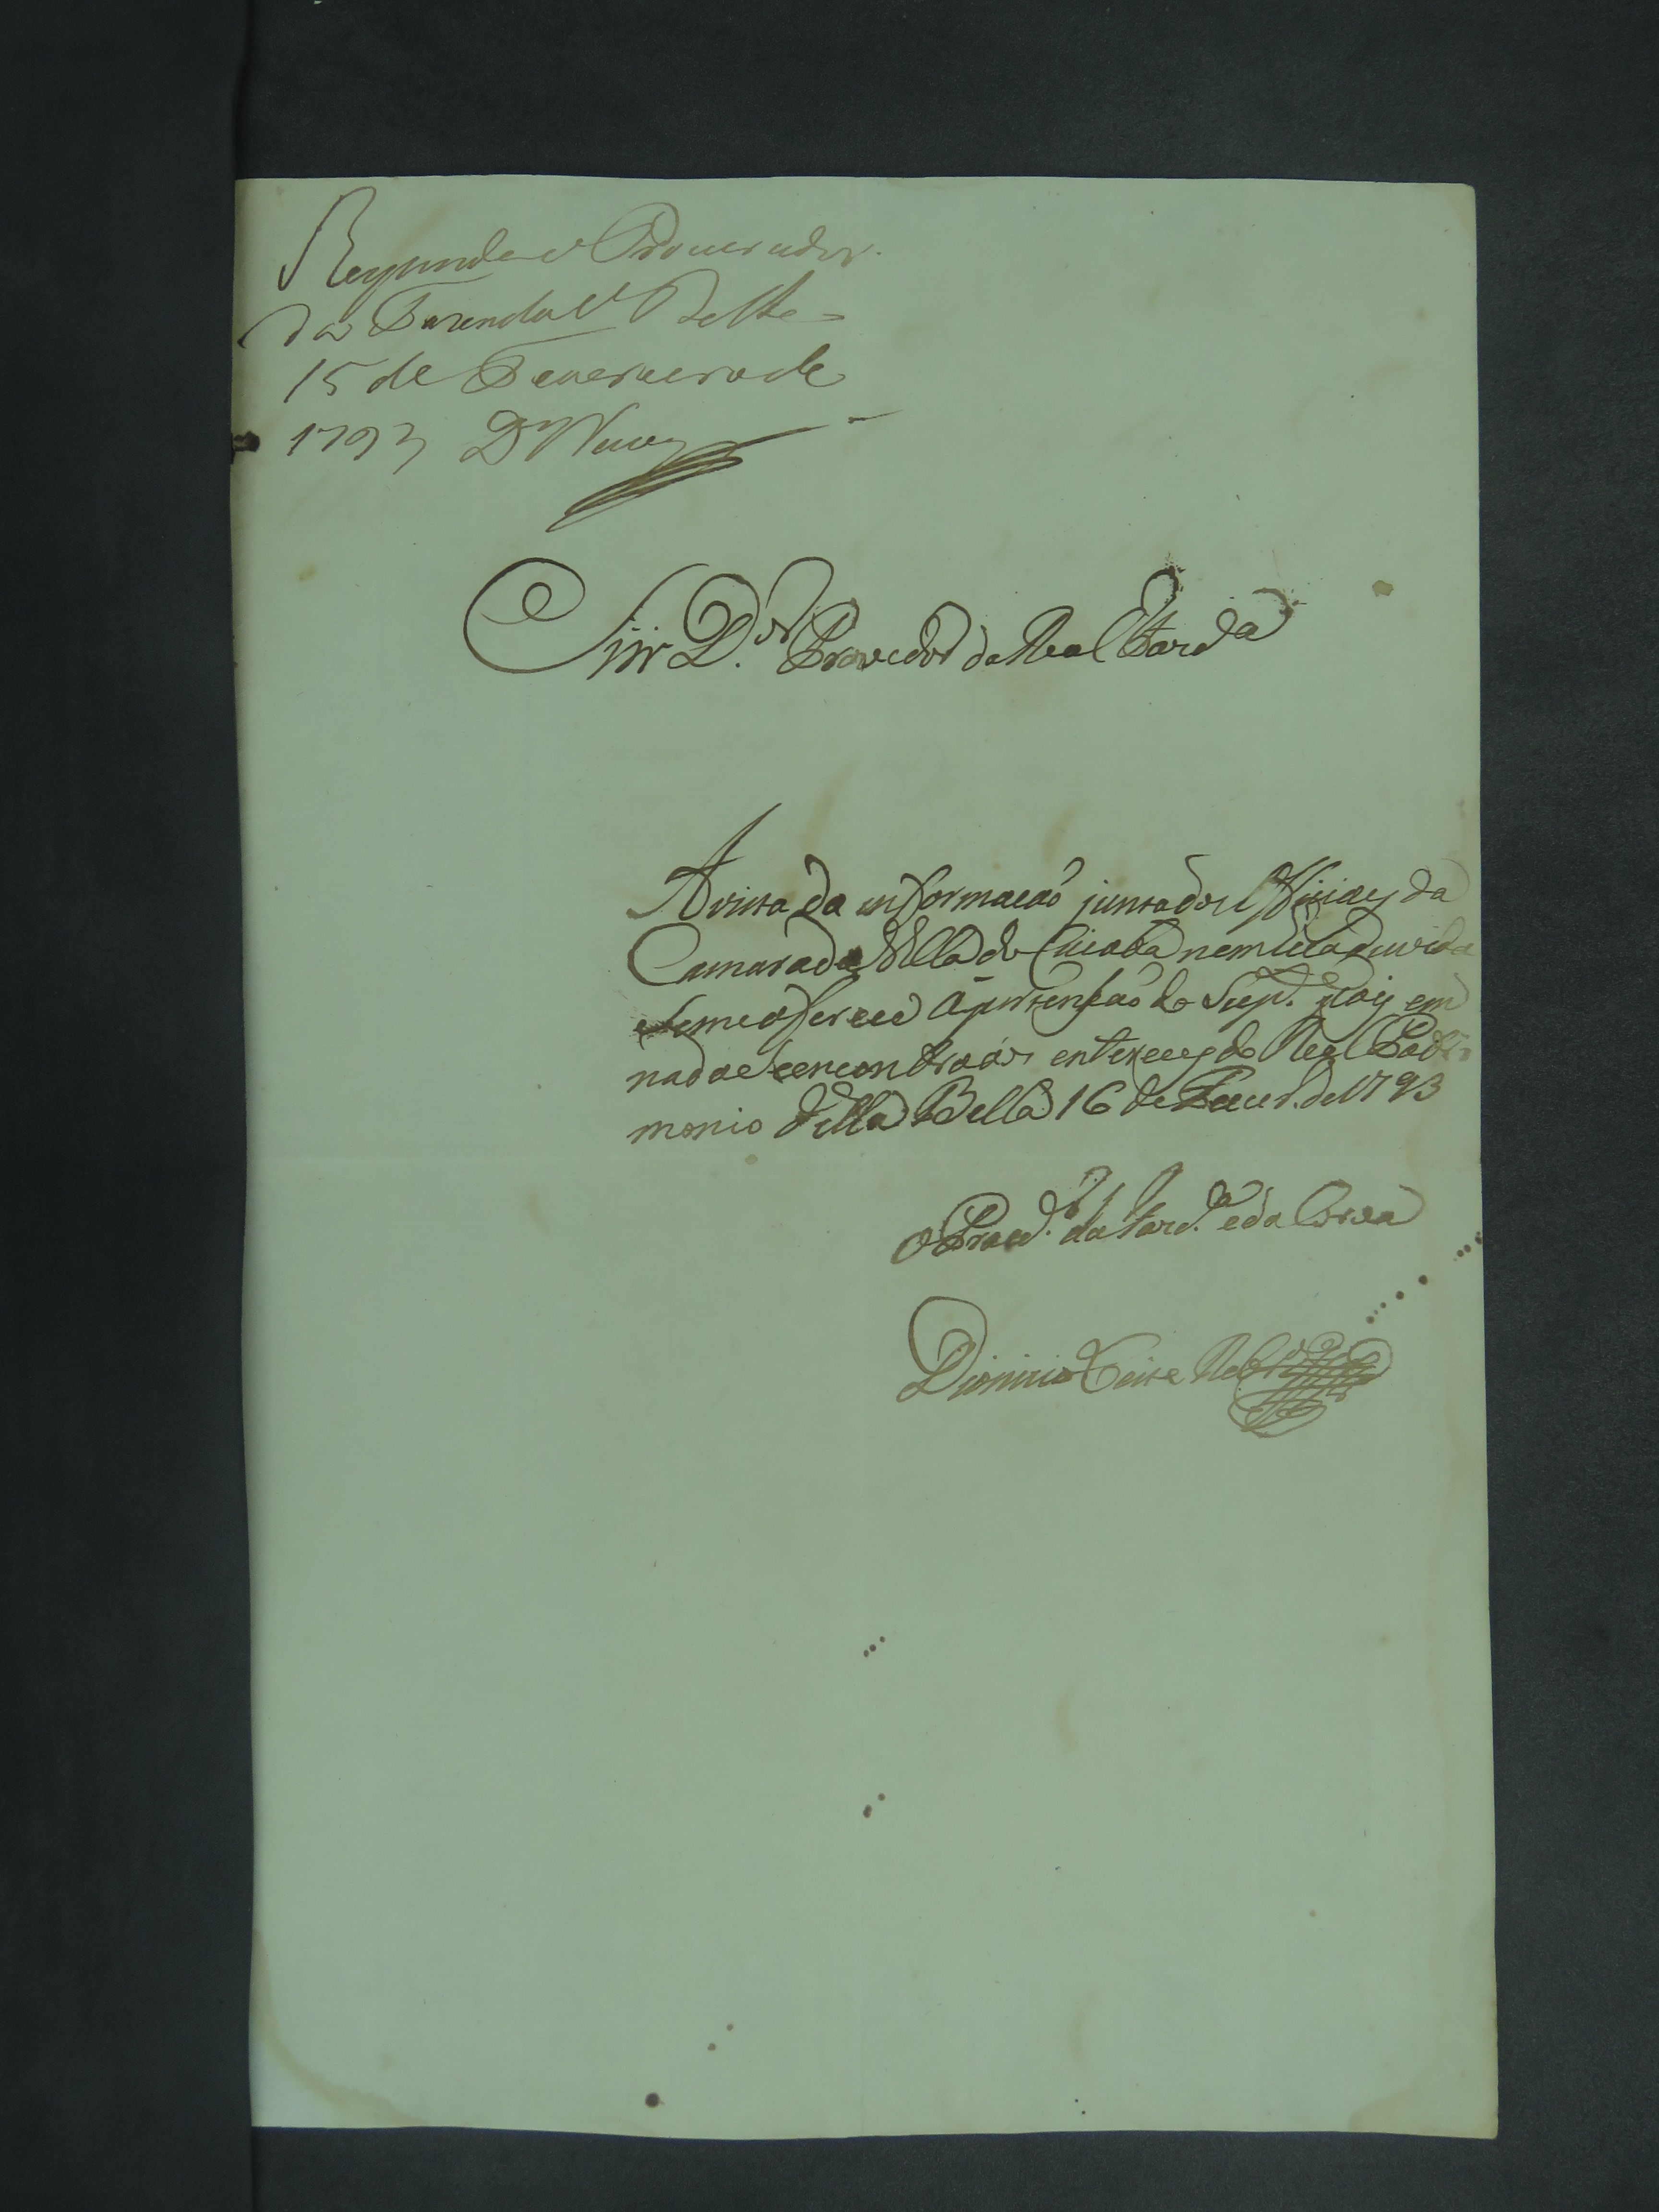 Responda o Procurador
da Fazenda V.ª Bella
15 de Fevereiro de
1793 D.r Novaes
Snr D.or Provedor da Real Fazd.a
A vista da informacaõ junta dos Officiaes da
Camara da Villa do Cuiabá nem huã duvida
se me oferece á pertensaõ do Sup.e pois em
nada se encontraõ os enterecez do Real Patri
monio Villa Bella 16 de Fever. de 1793
O Procd.or da Fazd.a e da Coroa
Dionizio Leite Reb